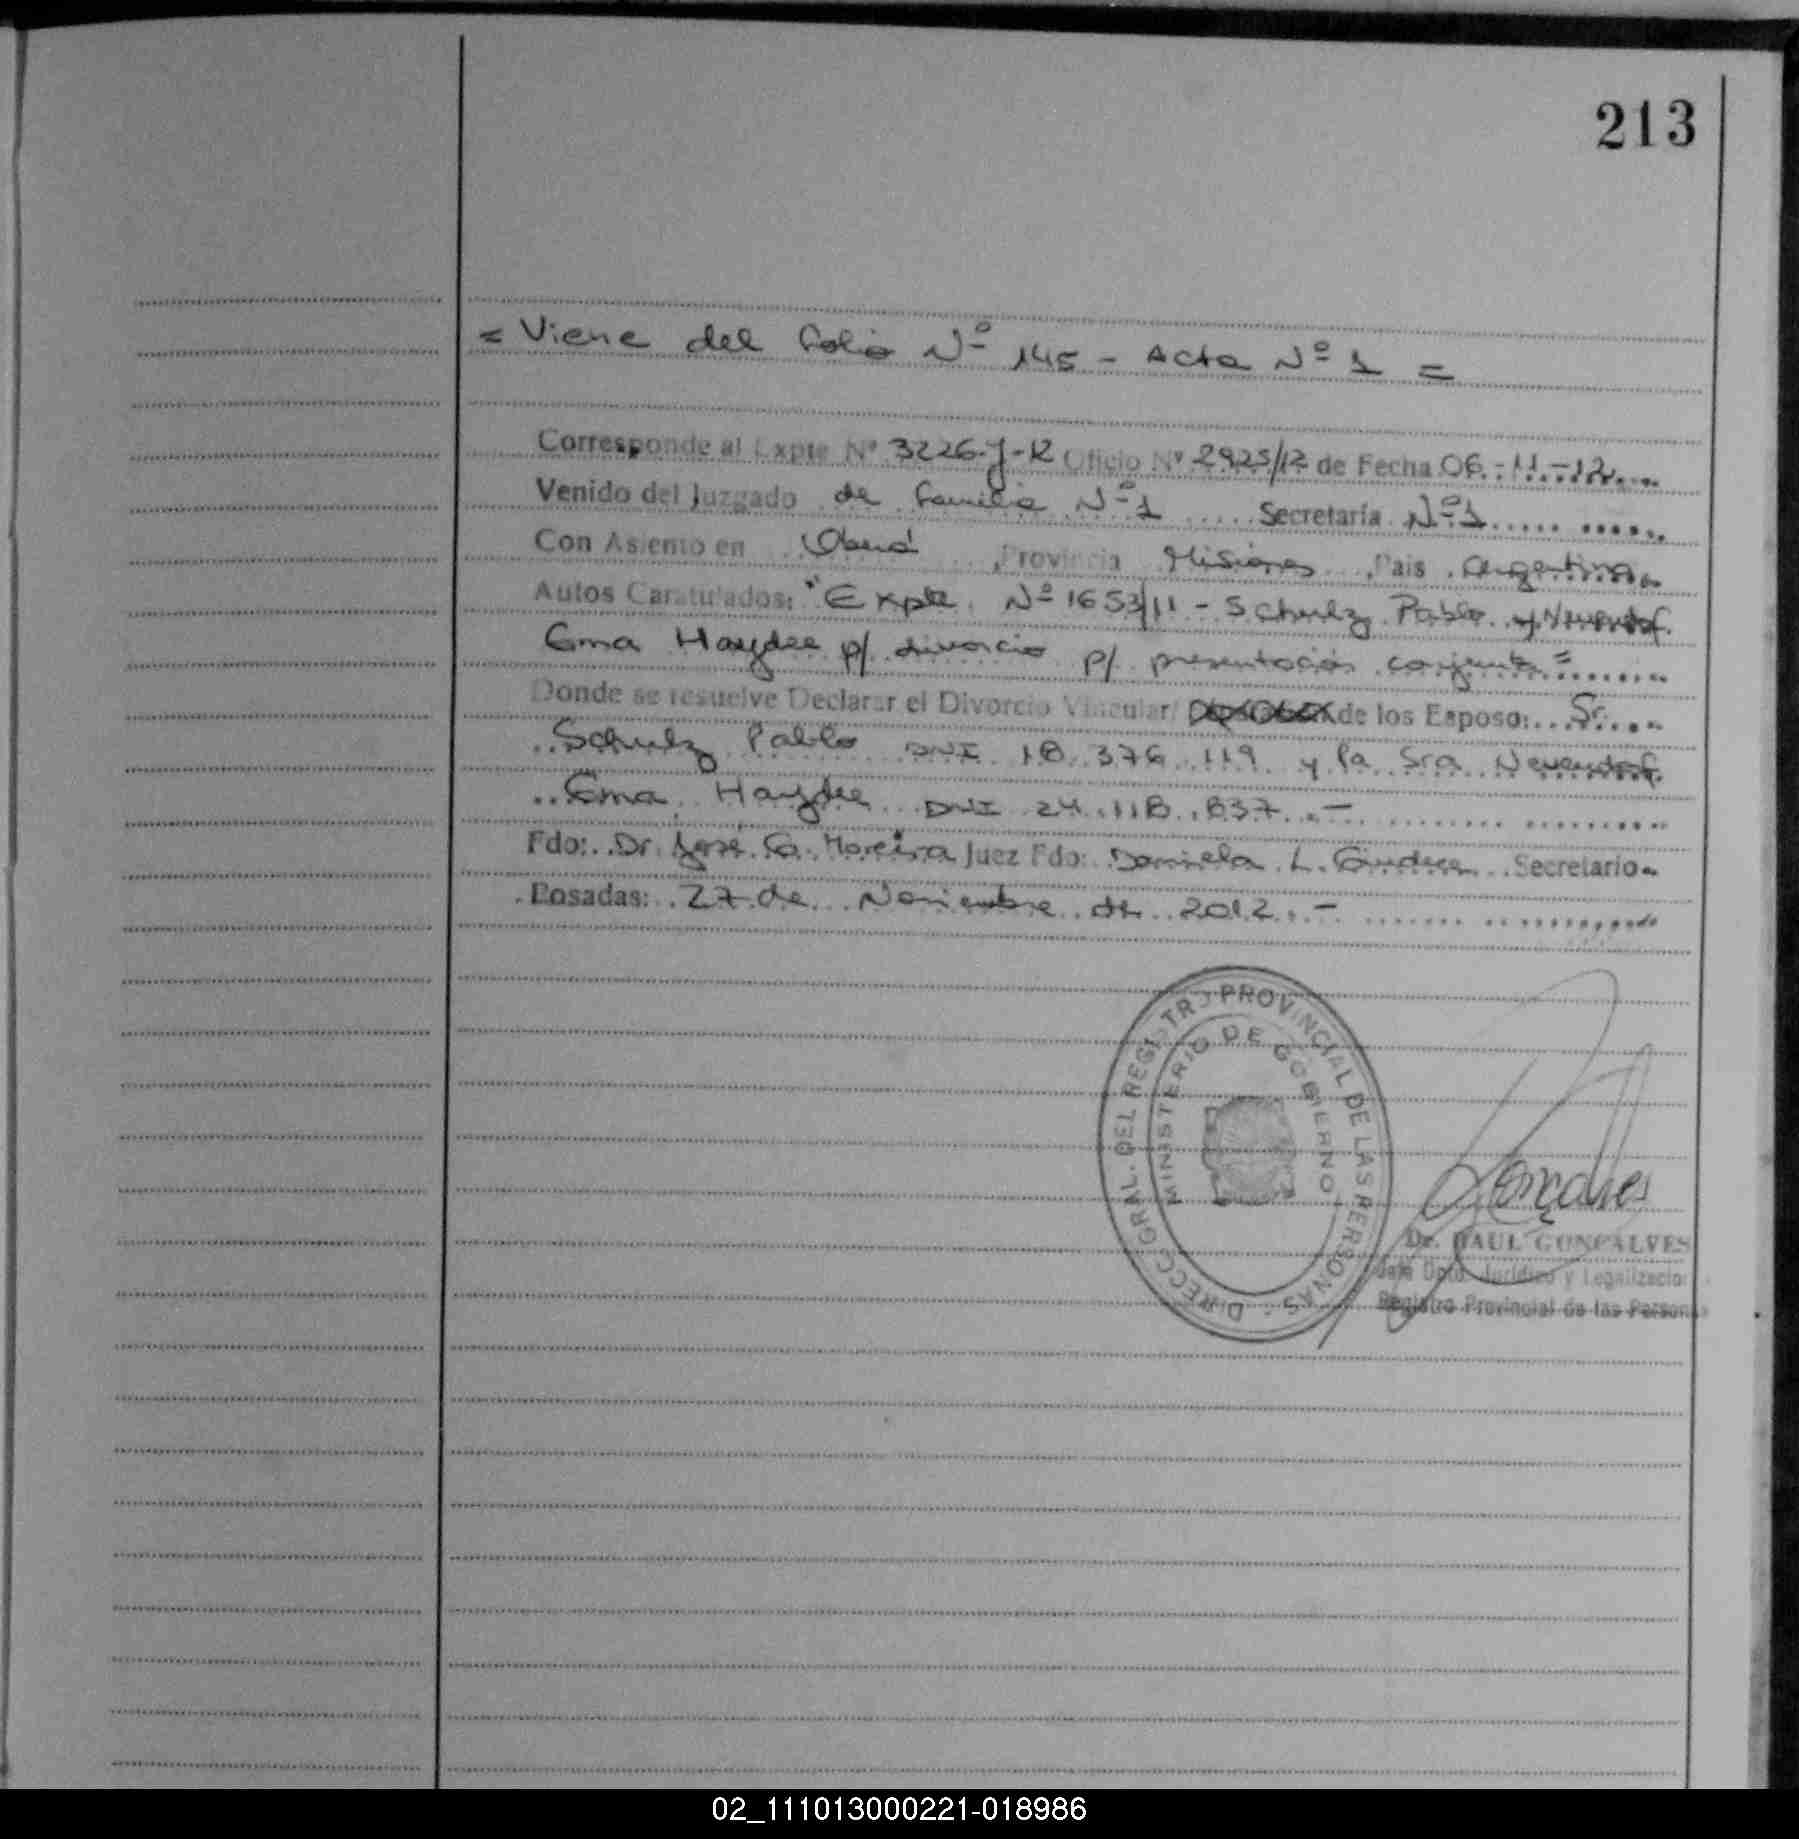 213
= Viene del folio Nº 145 - Acta Nº 1 =
Corresponde al Expte Nº 3226-J-12 Oficio Nº 2925/12 de Fecha 06-11-12
Venido del Juzgado de familia Nº 1 Secretaría Nº 1
Con Asiento en Oberá, Provincia Misiones, Pais Argentina
Autos Caratulados: "Expte. Nº 1653/11 - Schulz Pablo y Neuendorf
Ema Haydee p/ divorcio p/ presentación conjunta =
Donde se resuelve Declarar el Divorcio Vincular/ de los Esposo: Sr.
Schulz Pablo DNI 18.376.119 y la Sra Neuendorf
Ema Haydee DNI 24.118.837.-
Fdo: Dr. José G. Moreira Juez Fdo: Daniela L. Secretario
Posadas: 27 de Noviembre de 2012.-
DIRECC. GRAL. DEL REGISTRO PROVINCIAL DE LAS PERSONAS
MINISTERIO DE GOBIERNO
Gonçalves
Dr. RAUL GONCALVES
Jefe Dpto. Jurídico y Legalizacion
Registro Provincial de las Personas
02_111013000221-018986